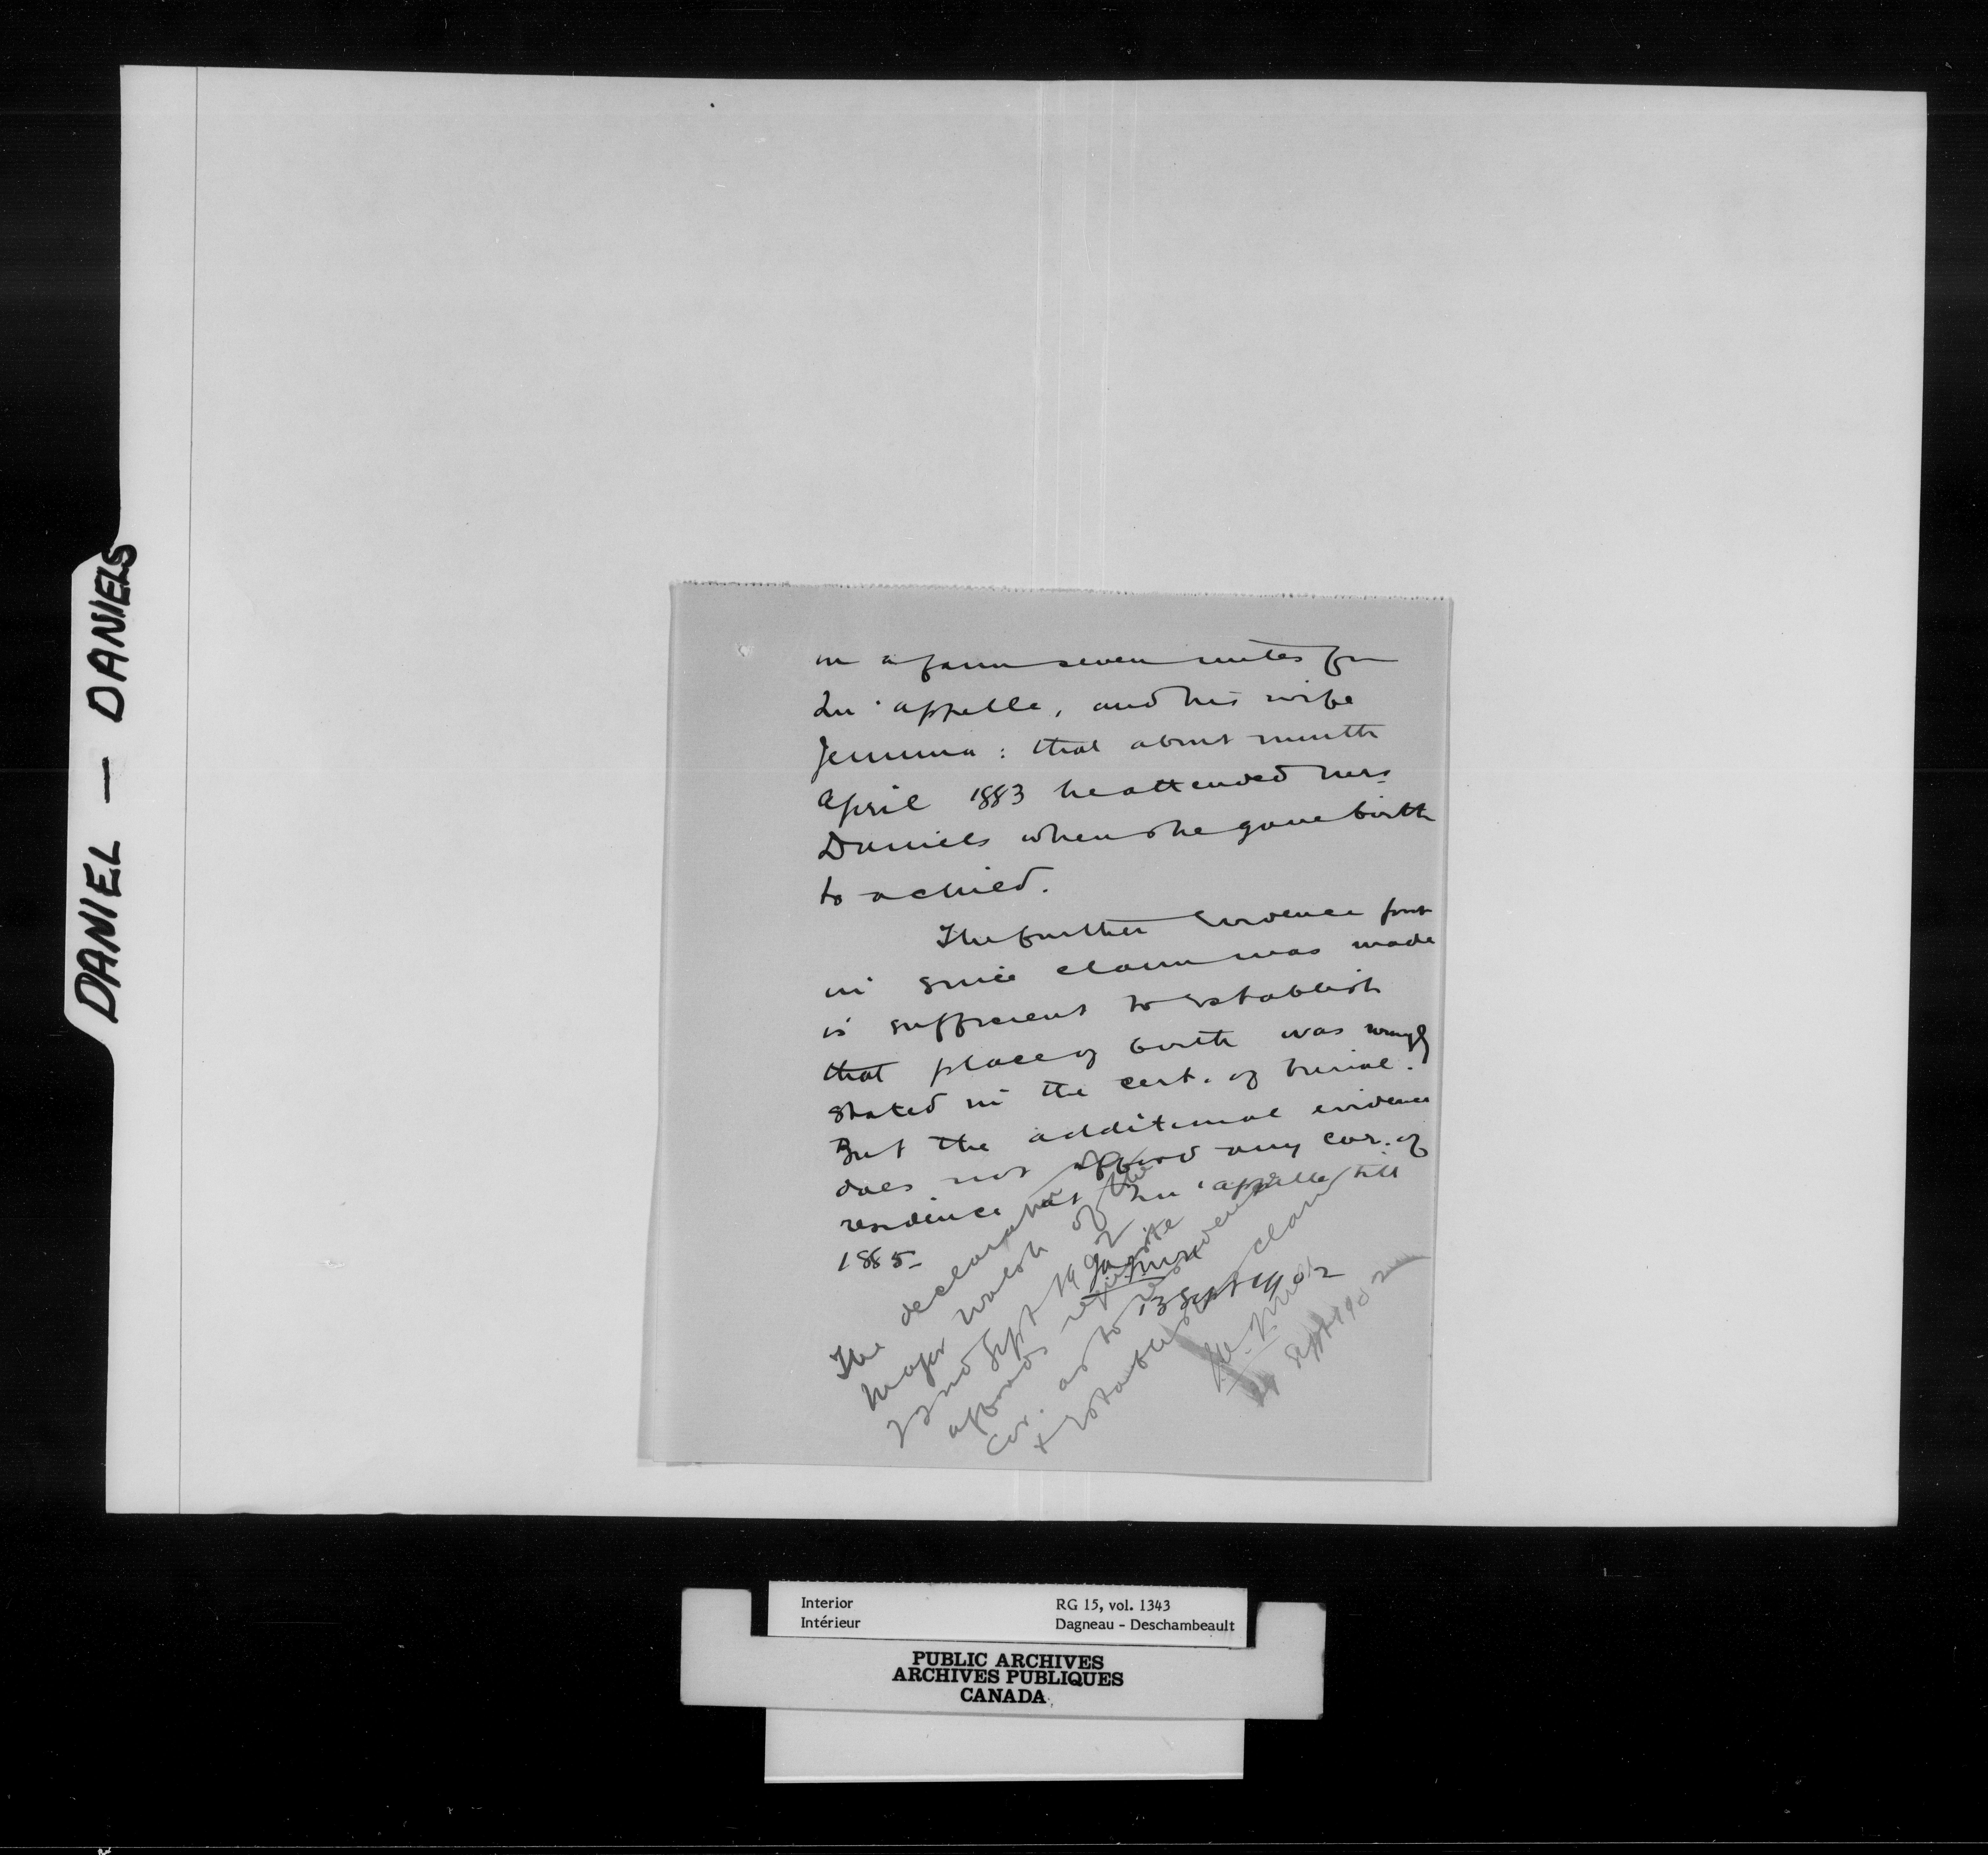 DANIEL — DANIELS
on a farm seven miles fm
Qu'appelle, and his wife
Jemima: that about month
April 1883 he attended Mrs
Daniels when she gave birth
to a child.
The further evidence put
in since claim was made
is sufficient to establish
that place of birth was wrongly
stated in the cert. of burial.
But the additional evidence
does not afford any cor. of
residence at Qu'appelle till
1885.
13 Sept 1902
The declaration of
Major Walsh of the
22nd Sept 1902
affords requisite
cor. as to residence
+ establishes claim
29 Sept 1902
Interior
Intérieur
RG 15, vol. 1343
Dagneau - Deschambeault
PUBLIC ARCHIVES
ARCHIVES PUBLIQUES
CANADA